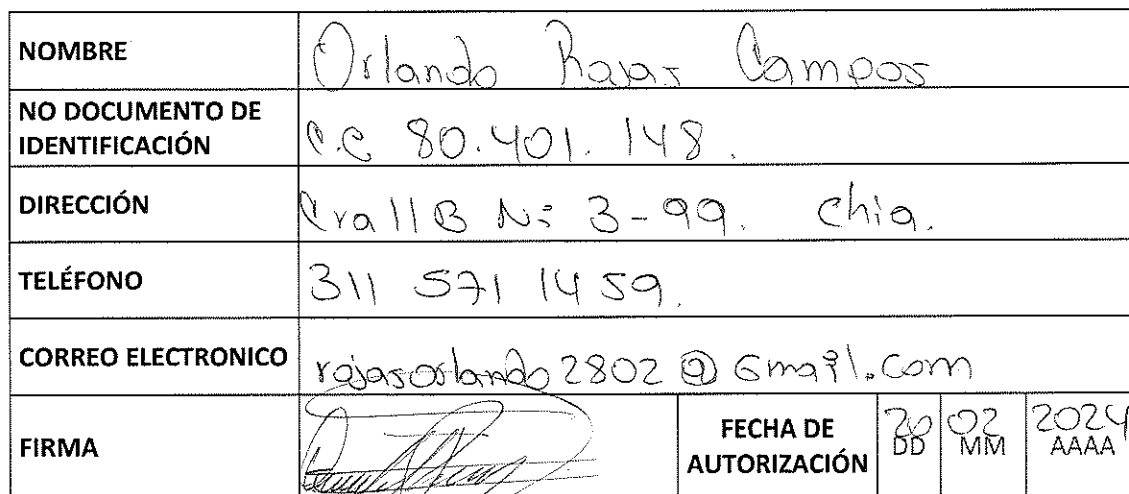 NOMBRE Orlando Rojas Campos
NO DOCUMENTO DE
IDENTIFICACIÓN C.C 80.401.148.
DIRECCIÓN Cra 11 B Nº 3-99. Chia.
TELÉFONO 311 571 1459.
CORREO ELECTRONICO rojasorlando2802@Gmail.com
FIRMA
FECHA DE
AUTORIZACIÓN
20 02 2024
DD MM AAAA